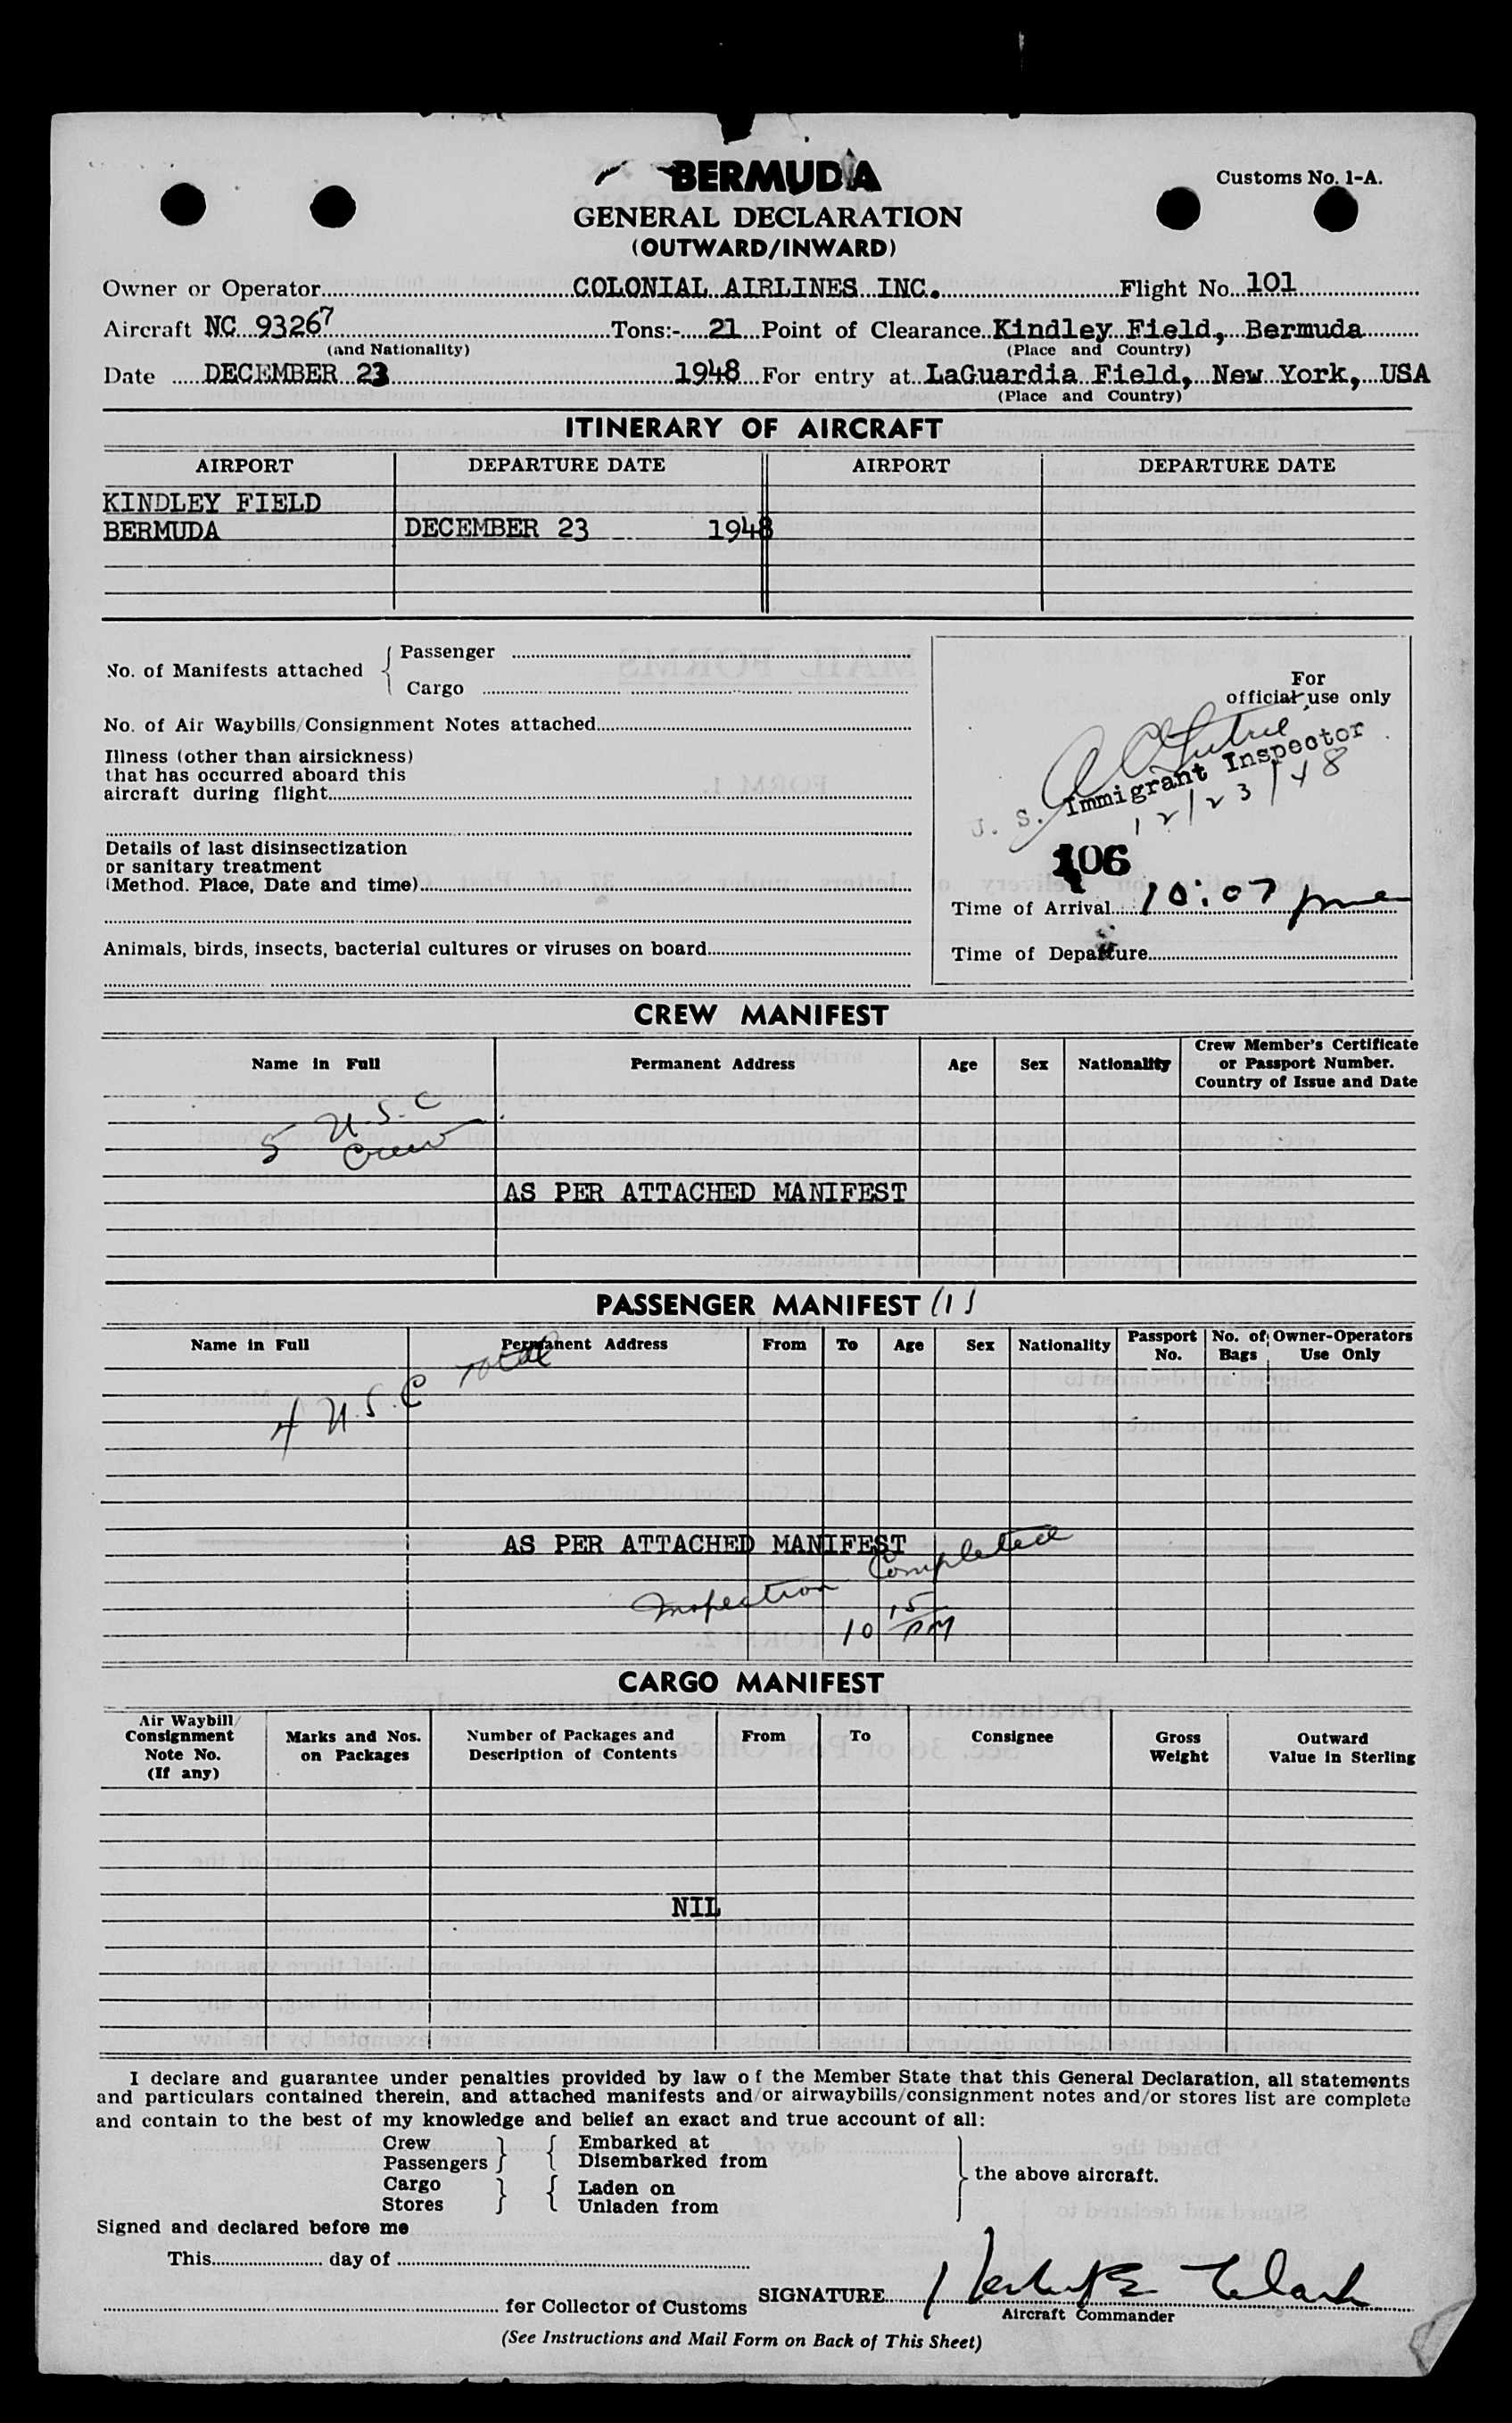 BERMUDA
Customs No. 1-A.
GENERAL DECLARATION
(OUTWARD/INWARD)
Owner or Operator COLONIAL AIRLINES INC. Flight No. 101
Aircraft NC 93267 Tons:- 21 Point of Clearance Kindley Field, Bermuda
(and Nationality) (Place and Country)
Date DECEMBER 23 1948 For entry at LaGuardia Field, New York, USA
(Place and Country)
ITINERARY OF AIRCRAFT
AIRPORT DEPARTURE DATE AIRPORT DEPARTURE DATE
KINDLEY FIELD
BERMUDA DECEMBER 23 1948
No. of Manifests attached
Passenger
Cargo
No. of Air Waybills/Consignment Notes attached
Illness (other than airsickness)
that has occurred aboard this
aircraft during flight
Details of last disinsectization
or sanitary treatment
(Method. Place, Date and time)
Animals, birds, insects, bacterial cultures or viruses on board
For
official use only
U. S. Immigrant Inspector
12/23/48
106
Time of Arrival 10:07 pm
Time of Departure
CREW MANIFEST
Name in Full Permanent Address Age Sex Nationality Crew Member's Certificate
or Passport Number.
Country of Issue and Date
5 U.S.C
Crew
AS PER ATTACHED MANIFEST
PASSENGER MANIFEST (1)
Name in Full Permanent Address From To Age Sex Nationality Passport No. No. of Bags Owner-Operators Use Only
4 U.S.C Total
AS PER ATTACHED MANIFEST
Inspection Completed
10 15 PM
CARGO MANIFEST
Air Waybill/
Consignment
Note No.
(If any)
Marks and Nos.
on Packages
Number of Packages and
Description of Contents
From To Consignee
Gross
Weight
Outward
Value in Sterling
NIL
I declare and guarantee under penalties provided by law of the Member State that this General Declaration, all statements
and particulars contained therein, and attached manifests and/or airwaybills/consignment notes and/or stores list are complete
and contain to the best of my knowledge and belief an exact and true account of all:
Crew Embarked at
Passengers Disembarked from
the above aircraft.
Cargo Laden on
Stores Unladen from
Signed and declared before me
This day of
for Collector of Customs
SIGNATURE
Aircraft Commander
(See Instructions and Mail Form on Back of This Sheet)